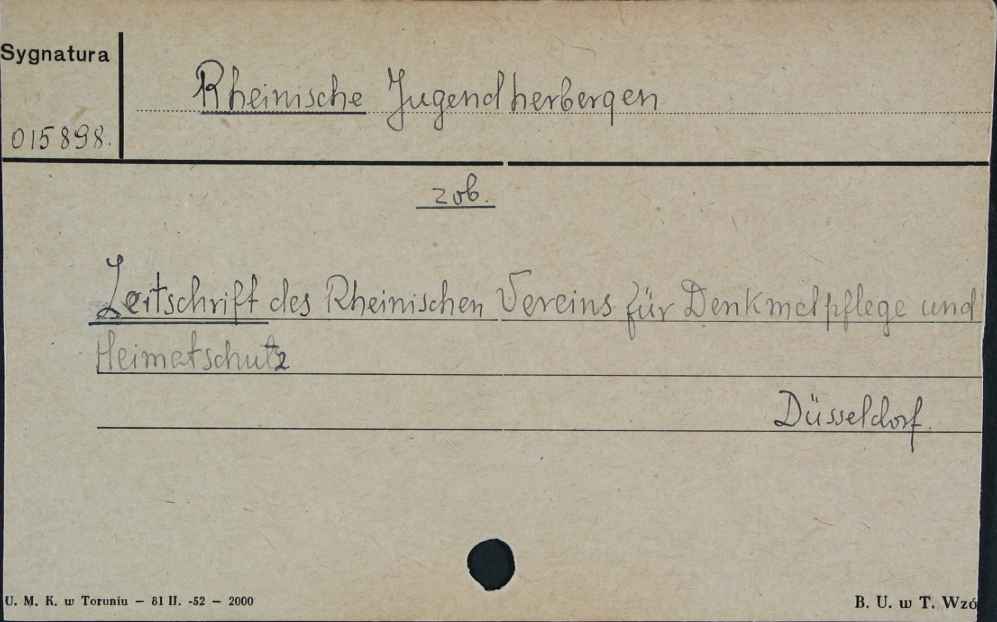 Sygnatura
Rheinische Jugendherbergen
015898.
zob.
Zeitschrift des Rheinischen Vereins für Denkmalpflege und
Heimatschutz
Düsseldorf.
U. M. K. w Toruniu — 81 II. -52 — 2000
B. U. w T. Wzó